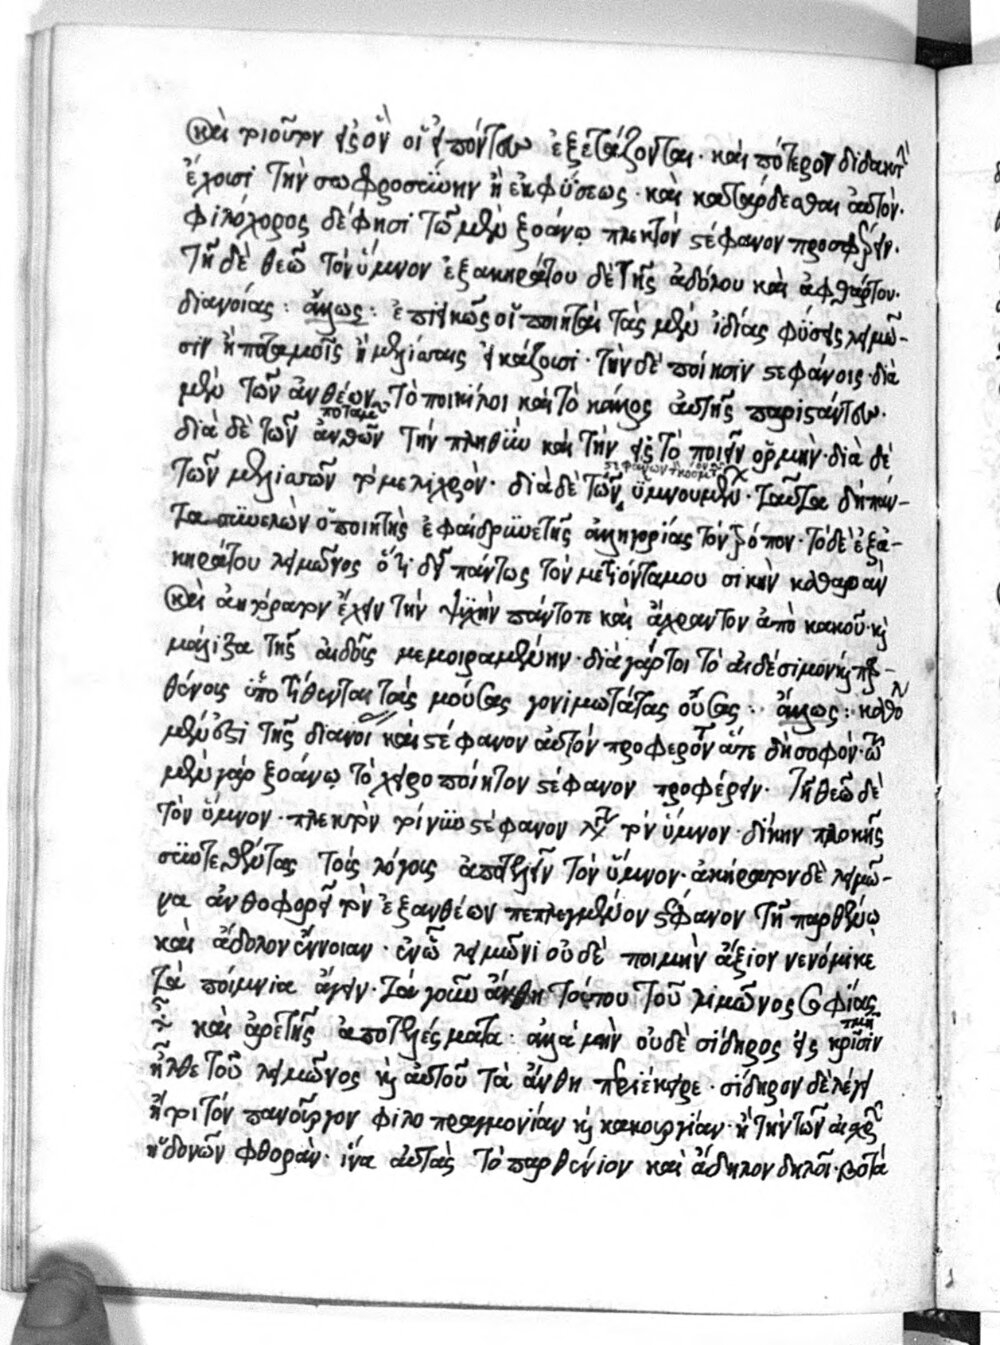 καὶ τοιοῦτον εἰς ὃν οἱ εἰπόντων ἐξετάζονται· καὶ πότερον διδακτὴν
ἔχουσι τὴν σωφροσύνην ἢ ἐκ φύσεως· καὶ
φιλόχορος δέ φησι τῶ μὲν ξοάνω πλεκτὸν στέφανον προσφέρειν·
τῆ δὲ θεῶ τὸν ὕμνον ἐξ ἀκηράτου δὲ τῆς ἀδόλου καὶ ἀφθάρτου
διανοίας: ἄλλως: ἐπιεικῶς οἱ ποιηταὶ τὰς μὲν ἰδίας φύσεις λειμῶ-
σιν ἢ ποταμοῖς ἢ μελίσσαις εἰκάζουσι· τὴν δὲ ποίησιν στεφάνοις· διὰ
μὲν τῶν ἀνθέων τὸ ποικίλον καὶ τὸ κάλλος αὐτῆς παριστάντων·
διὰ δὲ τῶν ποταμῶν τὴν πληθὺν καὶ τὴν εἰς τὸ ποιεῖν ὁρμὴν· διὰ δὲ
τῶν μελισσῶν τὸ μελιχρὸν· διὰ δὲ τῶν στεφάνων ὑμνουμένων· ταῦτα δὴ πάν-
τα συνελὼν ὁ ποιητὴς ἐφαίδρυνε τῆς ἀλληγορίας τὸν τρόπον· τὸ δὲ ἐξ ἀ-
κηράτου λειμῶνος ὅτι δεῖ πάντως τὸν μετιόντα μουσικὴν καθαρὰν
καὶ ἀκήρατον ἔχειν τὴν ψυχὴν πάντοτε καὶ ἄχραντον ἀπὸ κακοῦ· καὶ
μάλιστα τῆς αἰδοῦς μεμοιραμένην· διὰ γάρ τοι τὸ αἰδέσιμον καὶ παρ-
θένοις ὑποτίθενται τὰς μούσας γονιμωτάτας οὔσας: ἄλλως: καθὸ
μέν ἐστι τῆς διανοί καὶ στέφανον αὐτὸν προφέρων ἅτε δὴ σοφὸν· τῶ
μὲν γὰρ ξοάνω τὸ χειροποίητον στέφανον προφέρειν· τῆ θεῶ δὲ
τὸν ὕμνον· πλεκτὸν τοίνυν στέφανον λέγει τὸν ὕμνον· δίκην πλοκῆς
συντεθέντας τοῖς λόγοις ἀποτελεῖν τὸν ὕμνον· ἀκήρατον δὲ λειμῶ-
να ἀνθοφορεῖ τὸν ἐξ ἀνθέων πεπλεγμένον στέφανον τῆ παρθένω
καὶ ἄδολον ἔννοιαν· ἐν ὧ λειμῶνι οὐδὲ ποιμὴν ἄξιον νενόμικε
τὰ ποίμνια ἄγειν· τὰ γοῦν ἄνθη τούτου τοῦ λιμῶνος σοφίας
καὶ ἀρετῆς ἀποτελέσματα: ἀλλὰ μὴν οὐδὲ σίδηρος εἰς κρίσιν
ἦλθε τοῦ λειμῶνος καὶ αὐτοῦ τὰ ἄνθη περιέκειρε· σίδηρον δὲ λέγει
ἤτοι τὸν πανοῦργον φιλοπραγμονίαν καὶ κακουργίαν· ἢ τὴν τῶν αἰσχρῶν
ἡδονῶν φθορὰν· ἵνα αὐτὰς τὸ παρθένιον καὶ ἄδηλον δηλοῖ· βοτὰ